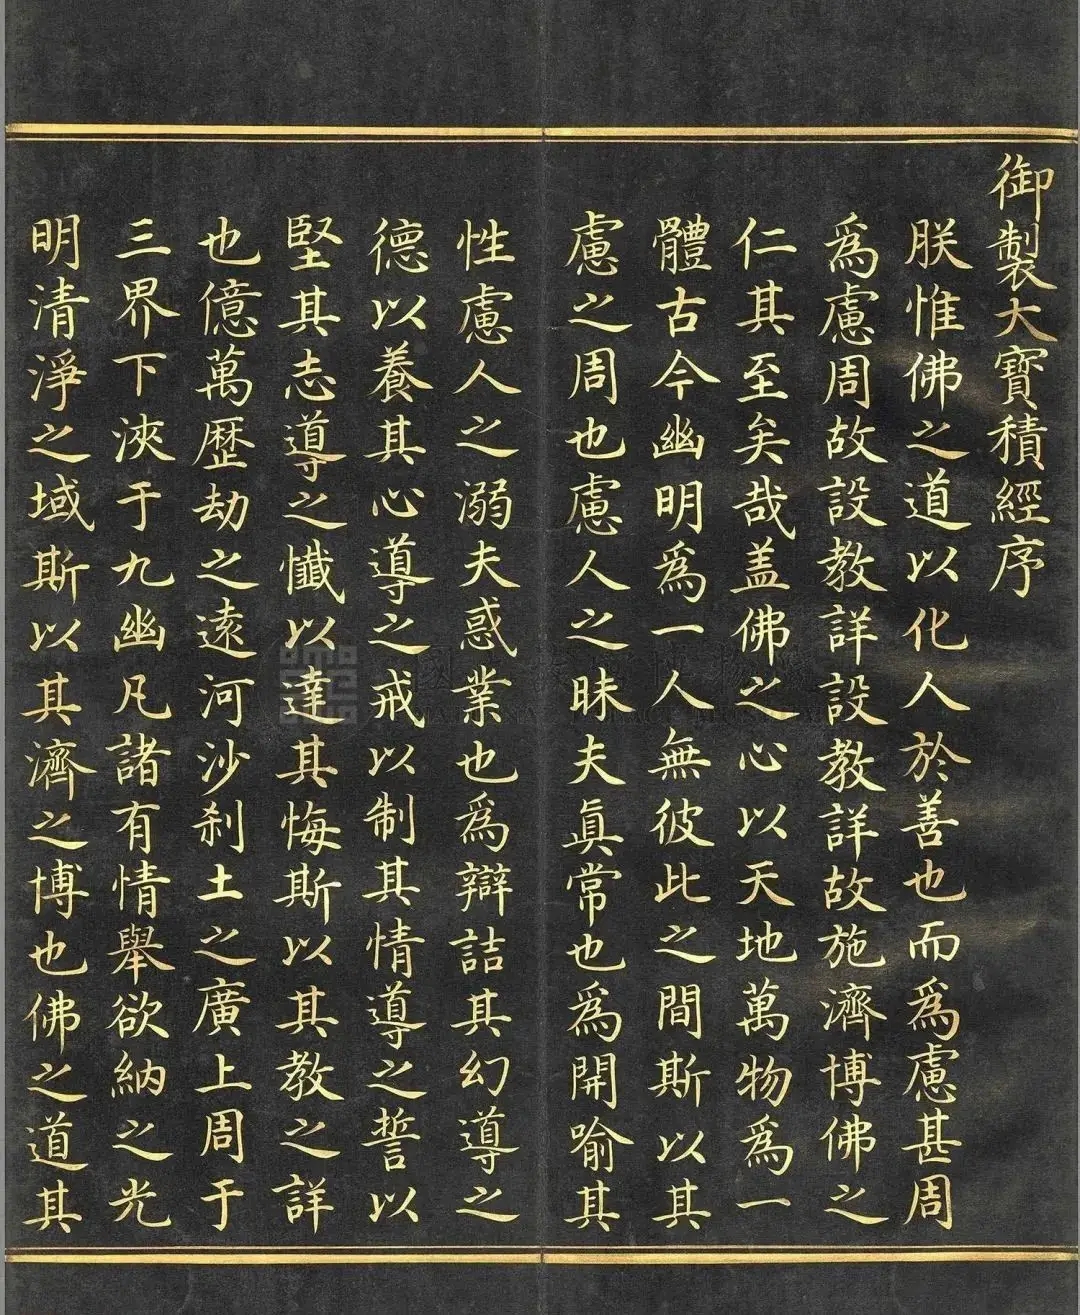 御製大寶積經序
朕惟佛之道以化人於善也而為慮甚周
為慮周故設教詳設教詳故施濟博佛之
仁其至矣哉盖佛之心以天地萬物為一
體古今幽明為一人無彼此之間斯以其
慮之周也慮人之昧夫真常也為開喻其
性慮人之溺夫惑業也為辯詰其幻導之
德以養其心導之戒以制其情導之誓以
堅其志導之懺以達其悔斯以其教之詳
也億萬歷劫之遠河沙刹土之廣上周于
三界下浹于九幽凡諸有情舉欲納之光
明清淨之域斯以其濟之博也佛之道其